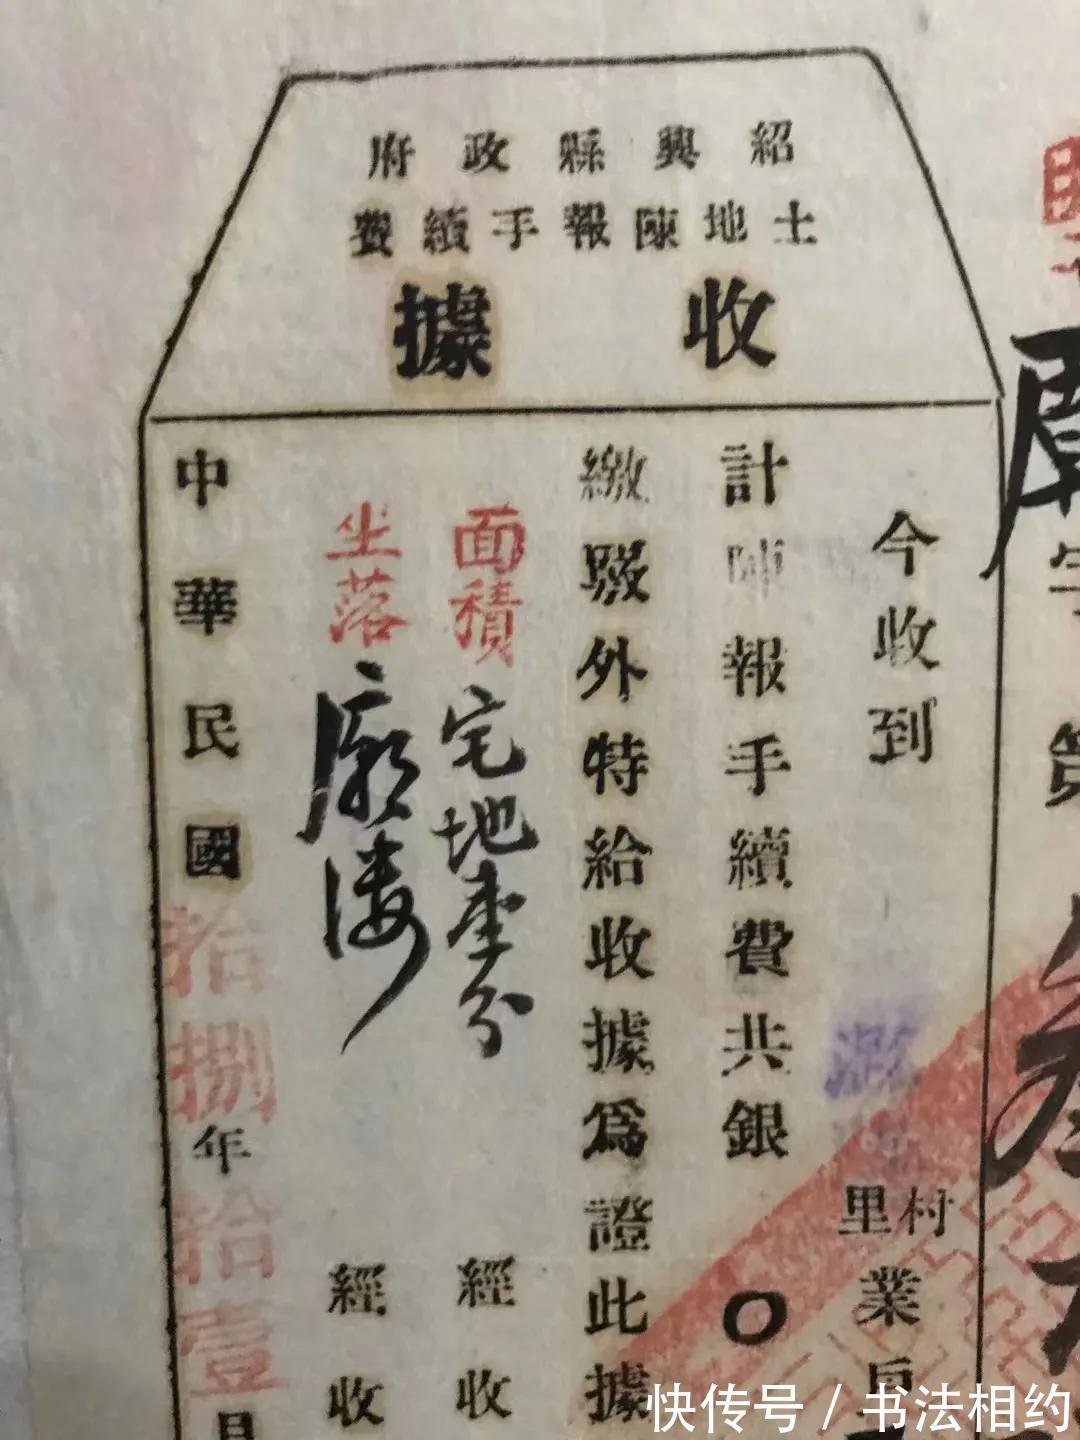 紹興縣政府
土地陳報手續費
收據
今收到
村里業戶
計陳報手續費共銀〇
繳騐外特給收據爲證此據
面積宅地壹分
經收
坐落
經收
中華民國拾捌年拾壹月
字第
快传号 / 书法相约